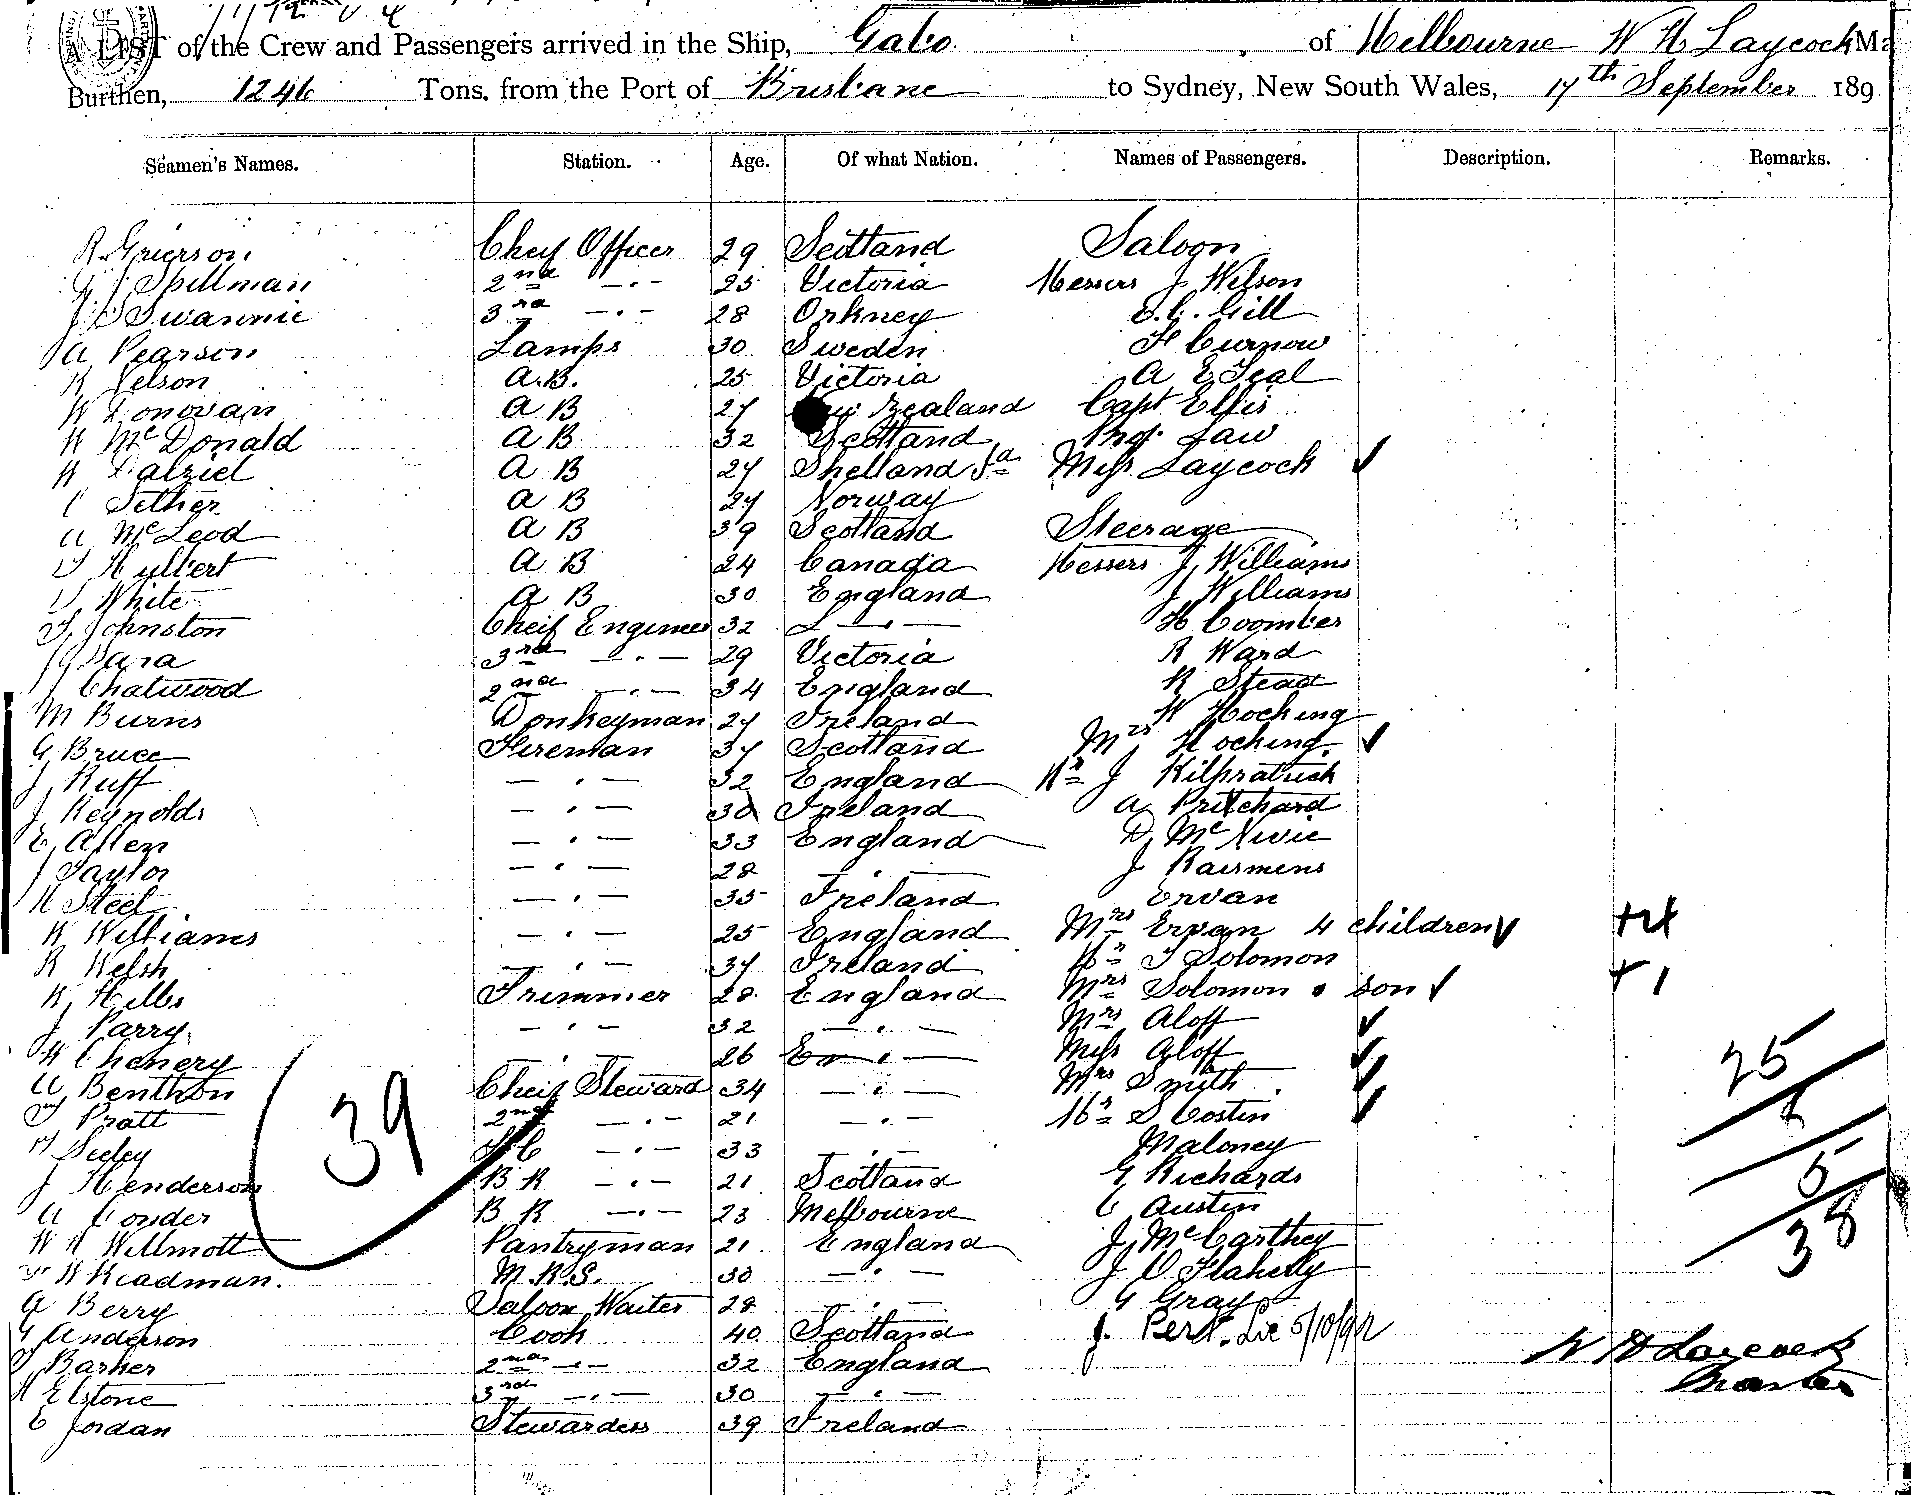 A LIST of the Crew and Passengers arrived in the Ship, Gabo of Melbourne W H Laycock Ma
Burthen, 1246 Tons. from the Port of Brisbane to Sydney, New South Wales, 17th September 189
Seamen's Names. Station. Age. Of what Nation. Names of Passengers. Description. Remarks.
R Grierson Cheif Officer 29 Scotland Saloon
G J Spillman 2nd —.— 25 Victoria Messrs J Wilson
J S Swannie 3rd —.— 28 Orkney E.C. Gill
A Pearson Lamps 30 Sweden H Curnow
R Nelson A.B. 25 Victoria A E Teal
W Donovan A B 27 Zealand Capt Ellis
McDonald A B 32 Scotland Prof. Law
Dalziel A B 27 Shetland Is Miss Laycock ✓
Sether A B 27 Norway
A McLeod A B 39 Scotland Steerage
Hulbert A B 24 Canada Messrs J Williams
White A B 30 England J Williams
Johnston Cheif Engineer 32 —.— H Coomber
3rd —.— 29 Victoria R Ward
J Chatwood 2nd —.— 34 England R Stead
M Burns Donkeyman 27 Ireland W Hocking
G Bruce Fireman 37 Scotland Mrs Hocking ✓
J Ruff —.— 32 England Mr J Kilpratrick
J Reynolds —.— 30 Ireland A Pritchard
E Allen —.— 33 England D McNivie
J Taylor —.— 28 — J Rasmens
Steel —.— 35 Ireland Ervan
W Williams —.— 25 England Mrs Ervan 4 children ✓ +4
R Welsh —.— 37 Ireland Mr Solomon
Hills Trimmer 28 England Mrs Solomon & son ✓ +1
J Parry —.— 32 —.— Mrs Aloff ✓
Chenery —.— 26 —.— Miss Aloff ✓
A Benthon Cheif Steward 34 —.— Mrs Smith ✓
Pratt 2nd —.— 21 —.— Mr S Costin ✓
Seeley F C —.— 33 —.— Maloney
J Henderson B R —.— 21 Scotland G Richards
A Couder B R —.— 23 Melbourne C Austin
W H Willmott Pantryman 21 England J McCarthey
W Readman. M.R.S. 30 —.— J O Flaherty
G Berry Saloon Waiter 28 —.— G Gray
G Anderson Cook 40 Scotland J. Pert. Lic 5/10/92
Barker 2nd —.— 32 England
H Elstone 3rd —.— 30 —.—
C Jordan Stewardess 39 Ireland
39
25
5
38
W H Laycock
Master